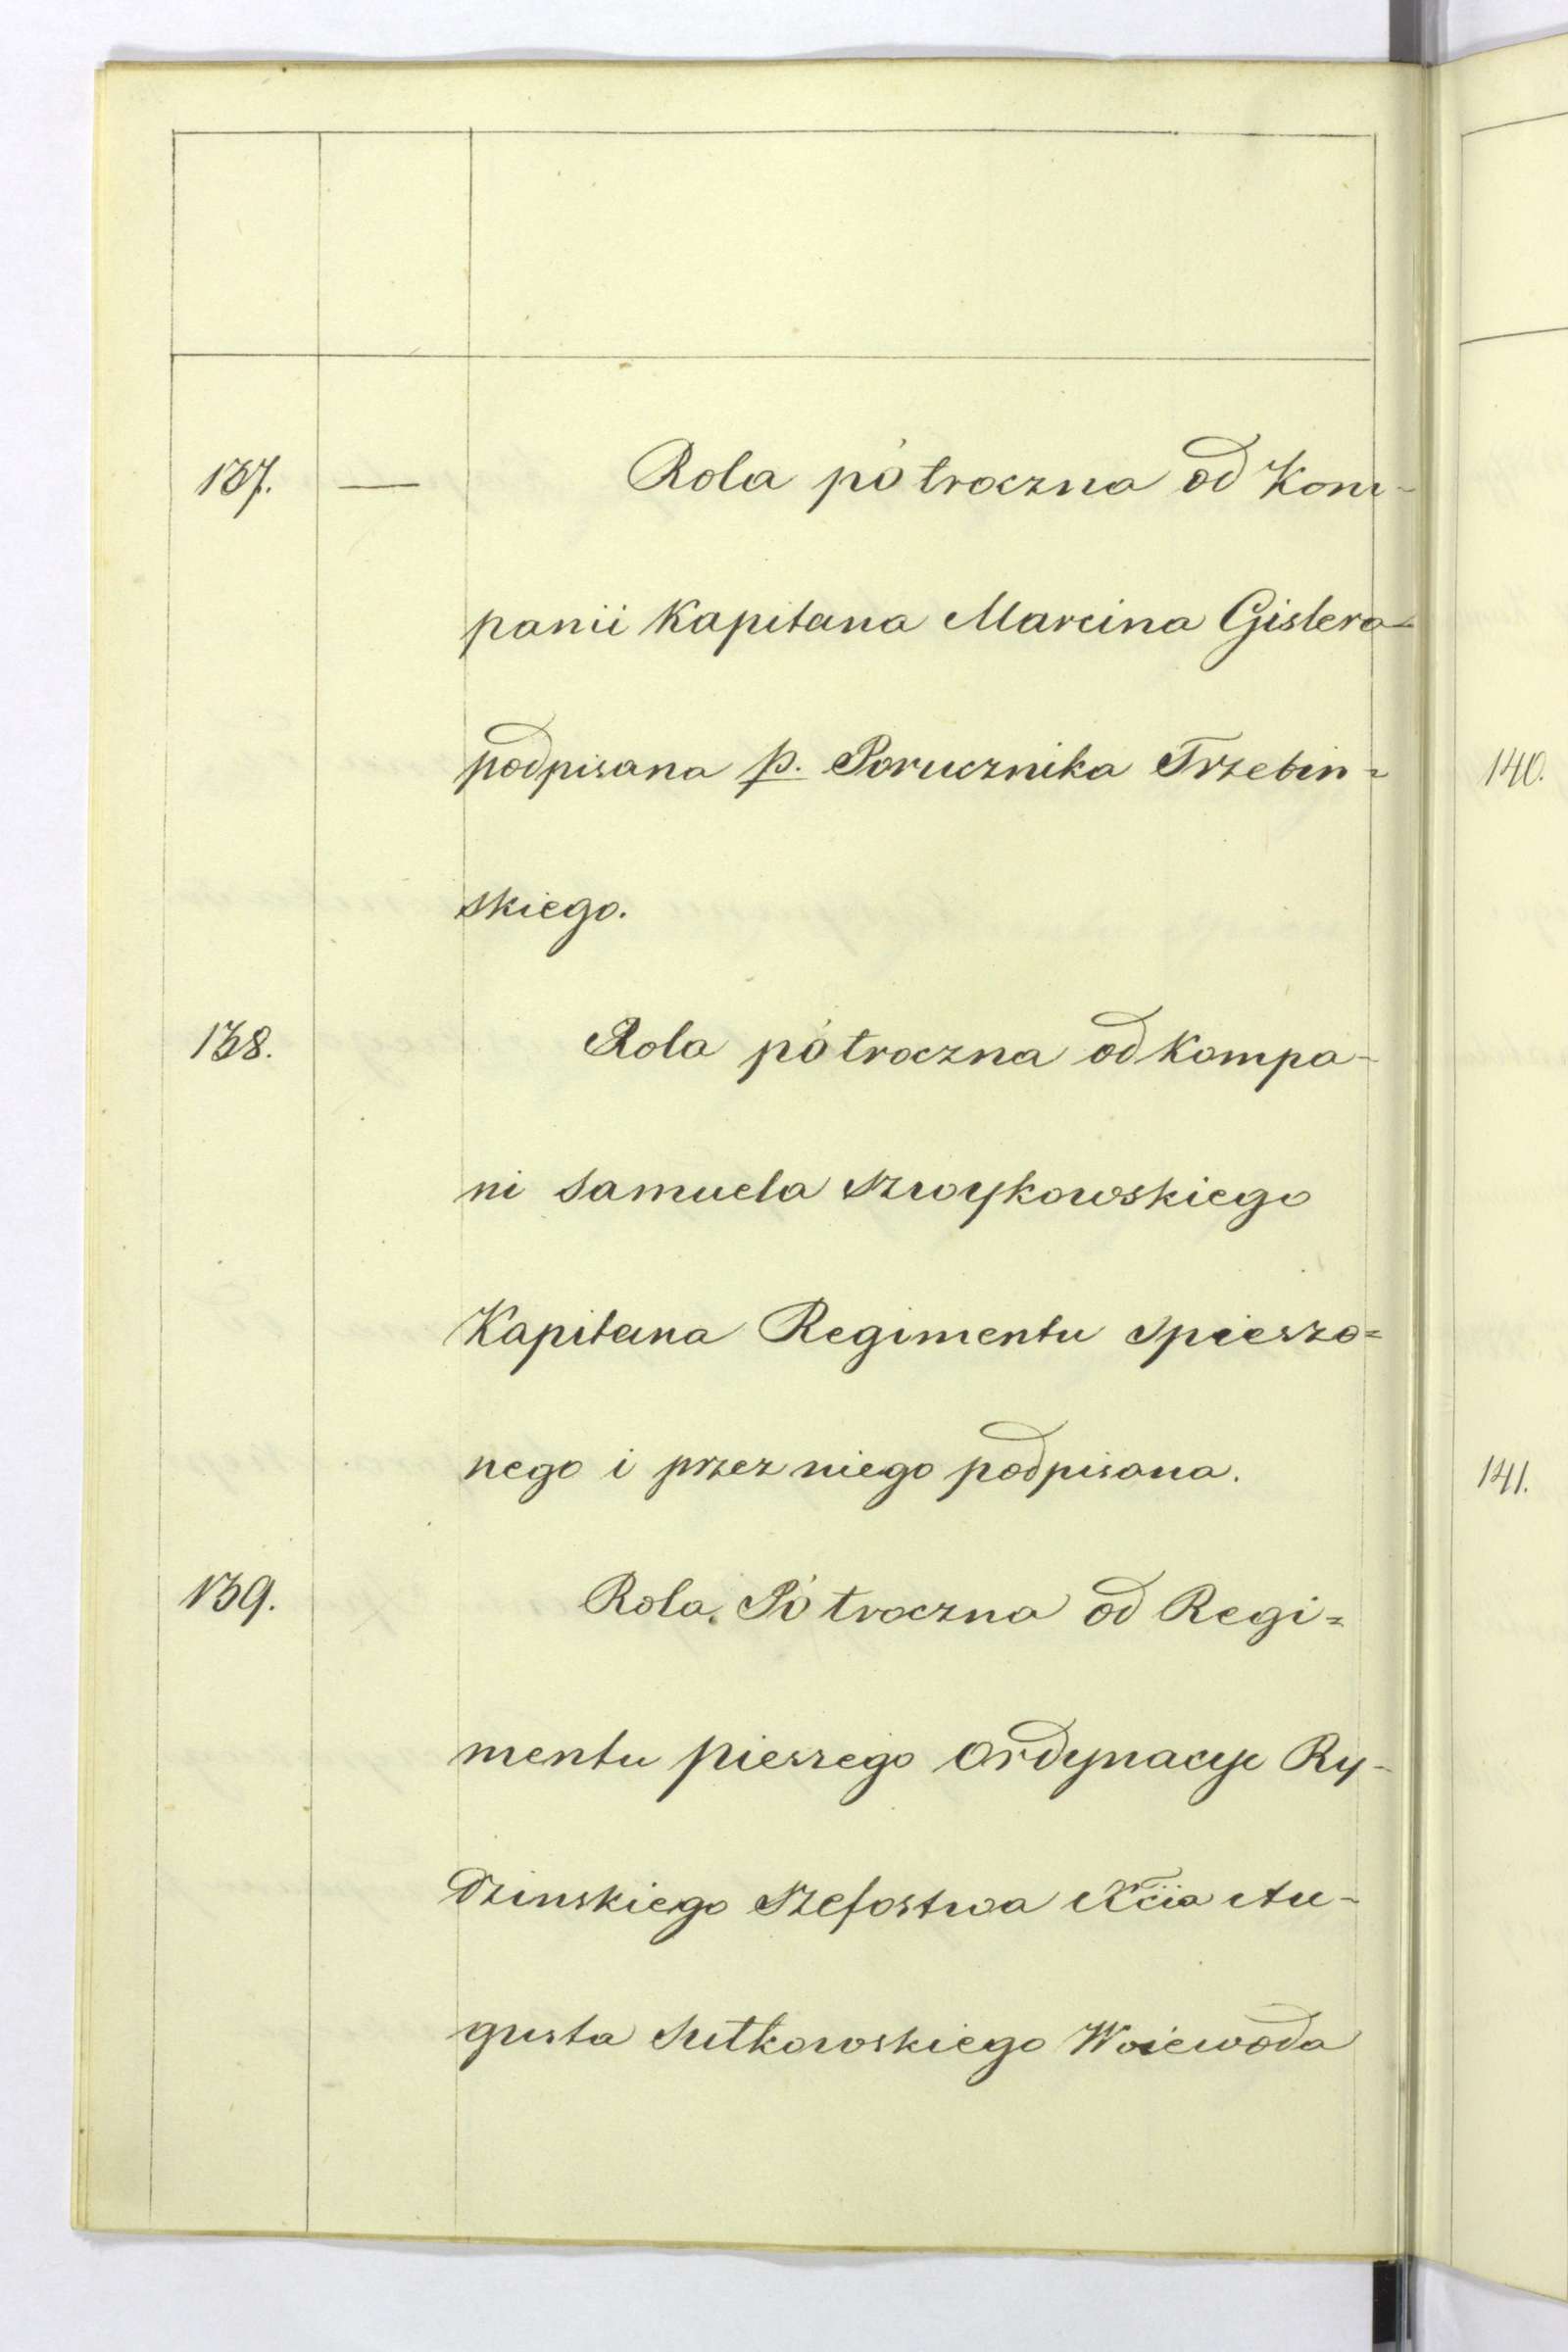 137. — Rola pótroczna od Kom-
panii Kapitana Marcina Gislera
podpisana p. Porucznika Trzebin=
skiego.
138. Rola pótroczna od Kompa-
ni Samuela Szwykowskiego
Kapitana Regimentu Spieszo=
nego i przez niego podpisana.
139. Rola Pótroczna od Regi=
mentu pieszego Ordynacye Ry-
dzinskiego Szefostwa Xcia Au-
gusta Sutkowskiego Woiewoda
140.
141.